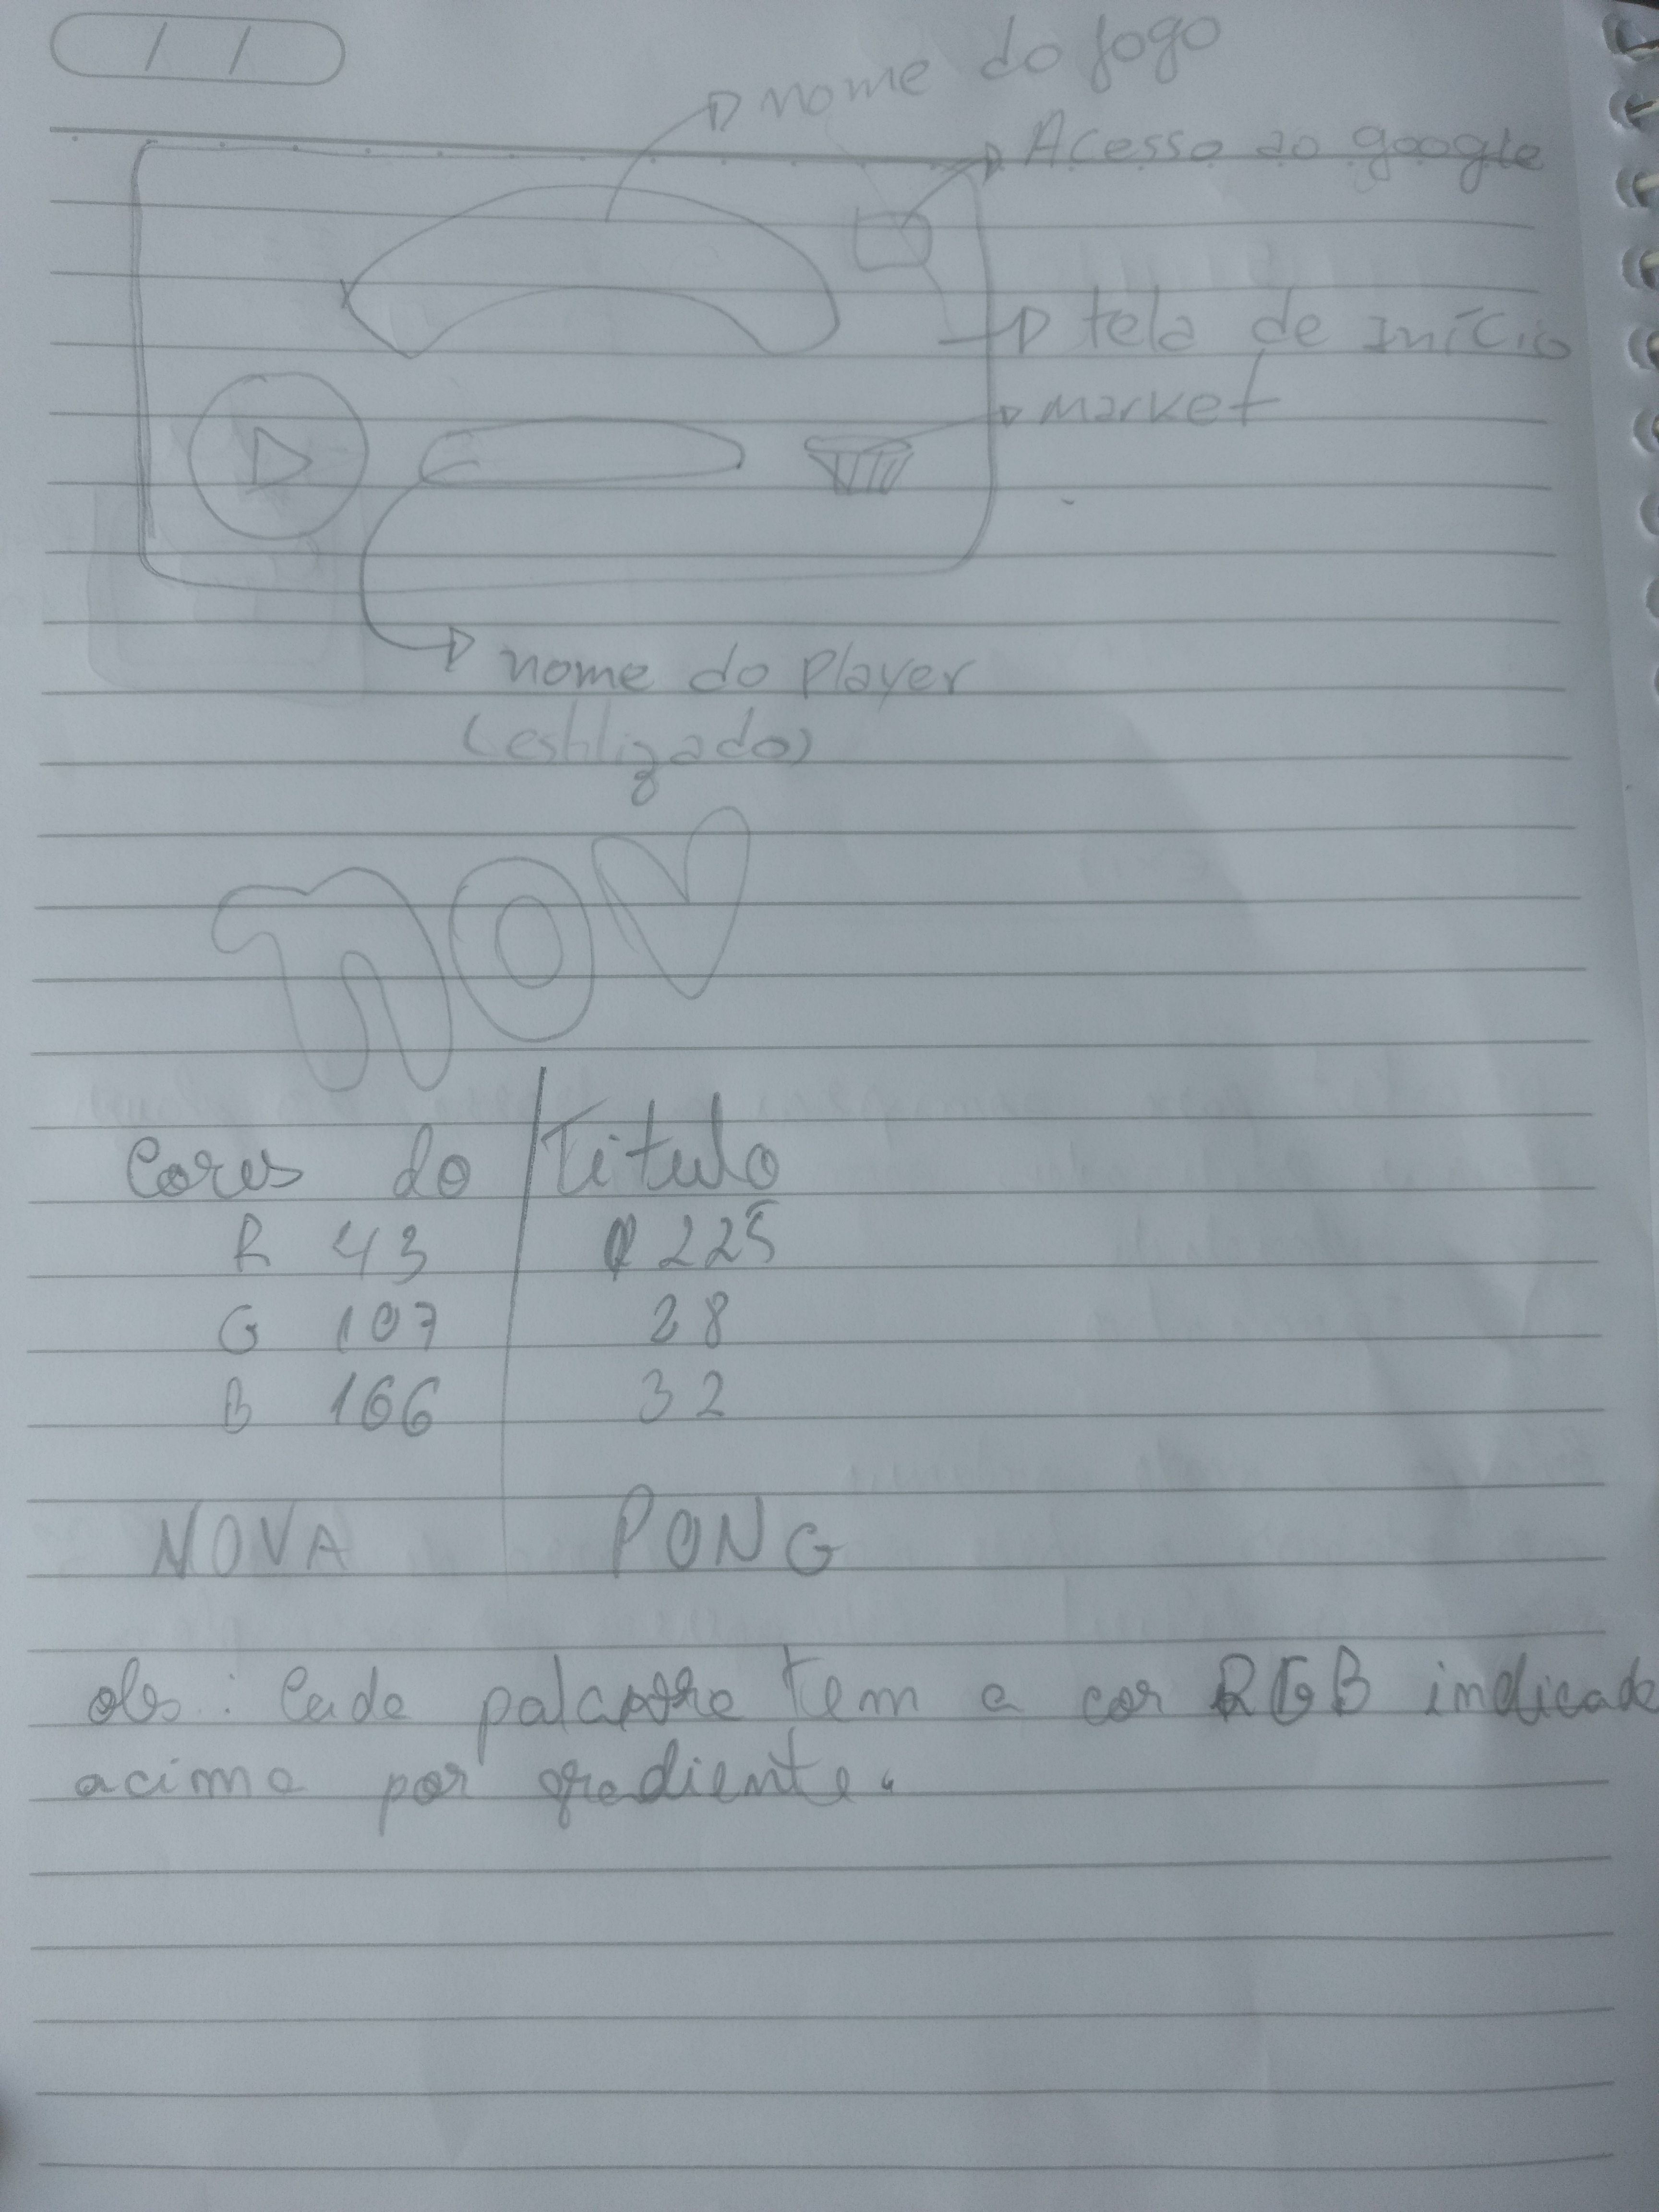 / /
nome do jogo
Acesso ao google
tela de início
market
nome do Player
(estilizado)
NOV
Cores do Titulo
R 43 225
G 107 28
B 166 32
NOVA PONG
obs: Cada palavra tem a cor RGB indicada
acima por gradiente.